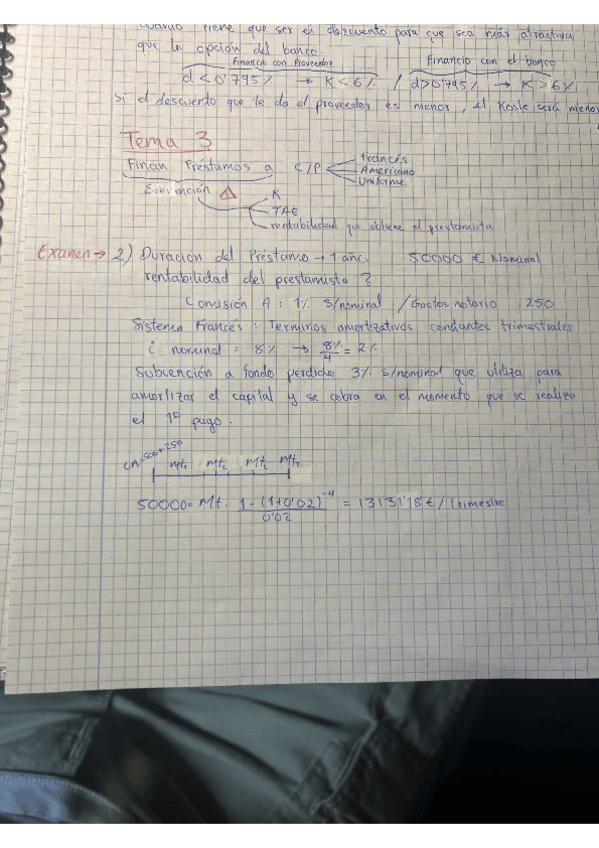 que ser el descuento para que sea más atractiva
que la opción del banco.
Financio con Proveedor Financio con el banco
d<0'795% → K<6% / d>0'795% → K>6%
Si el descuento que le da el proveedor es menor, el Koste será menor
Tema 3
Finan Préstamos a C/P Francés
Americano
Uniforme
Subvención K
TAE
rentabilidad que obtiene el prestamista
Examen → 2) Duración del Préstamo → 1 año. 50000 € Nominal
rentabilidad del prestamista?
Comisión A: 1% s/nominal / Gastos notario 250
Sistema Francés: Terminos amortizativos constantes trimestrales
i nominal = 8% → 8%/4 = 2%
Subvención a fondo perdido 3% s/nominal que utiliza para
amortizar el capital y se cobra en el momento que se realiza
el 1º pago.
CA=500+250 Mt1 Mt2 Mt2 Mt4
50000= Mt. 1-(1+0'02)^-4 / 0'02 = 13131'18 €/Trimestre